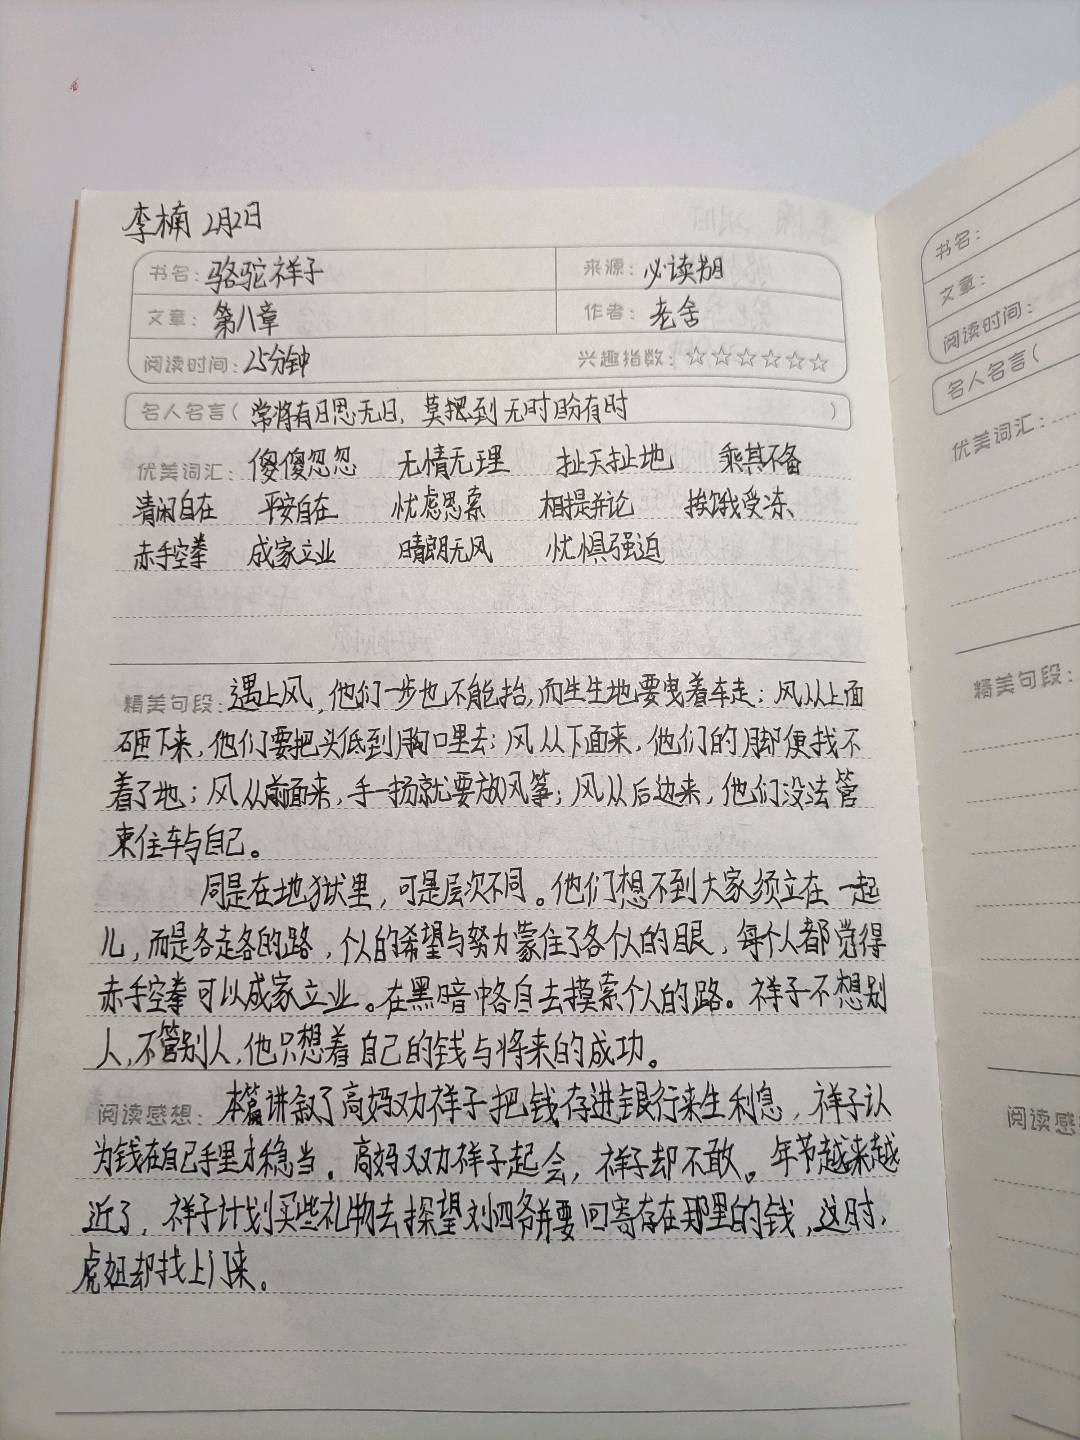 李楠 2月2日
书名: 骆驼祥子 来源: 必读书目
文章: 第八章 作者: 老舍
阅读时间: 25分钟 兴趣指数: ☆☆☆☆☆☆
名人名言( 常将有日思无日，莫把到无时盼有时 )
优美词汇: 傻傻忽忽 无情无理 扯天扯地 乘其不备
清闲自在 平安自在 忧虑思索 相提并论 挨饿受冻
赤手空拳 成家立业 晴朗无风 忧惧强迫
精美句段: 遇上风，他们一步也不能抬，而生生地要曳着车走；风从上面
砸下来，他们要把头低到胸口里去；风从下面来，他们的脚便找不
着了地；风从前面来，手一扬就要放风筝；风从后边来，他们没法管
束住车与自己。
同是在地狱里，可是层次不同。他们想不到大家须立在一起
儿，而是各走各的路，个人的希望与努力蒙住了各个人的眼，每个人都觉得
赤手空拳可以成家立业。在黑暗中各自去摸索个人的路。祥子不想别
人，不管别人，他只想着自己的钱与将来的成功。
阅读感想: 本篇讲叙了高妈劝祥子把钱存进银行来生利息，祥子认
为钱在自己手里才稳当。高妈又劝祥子起会，祥子却不敢。年节越来越
近了，祥子计划买些礼物去探望刘四爷并要回寄存在那里的钱，这时，
虎妞却找上门来。
书名:
文章:
阅读时间:
名人名言(
优美词汇:
精美句段:
阅读感